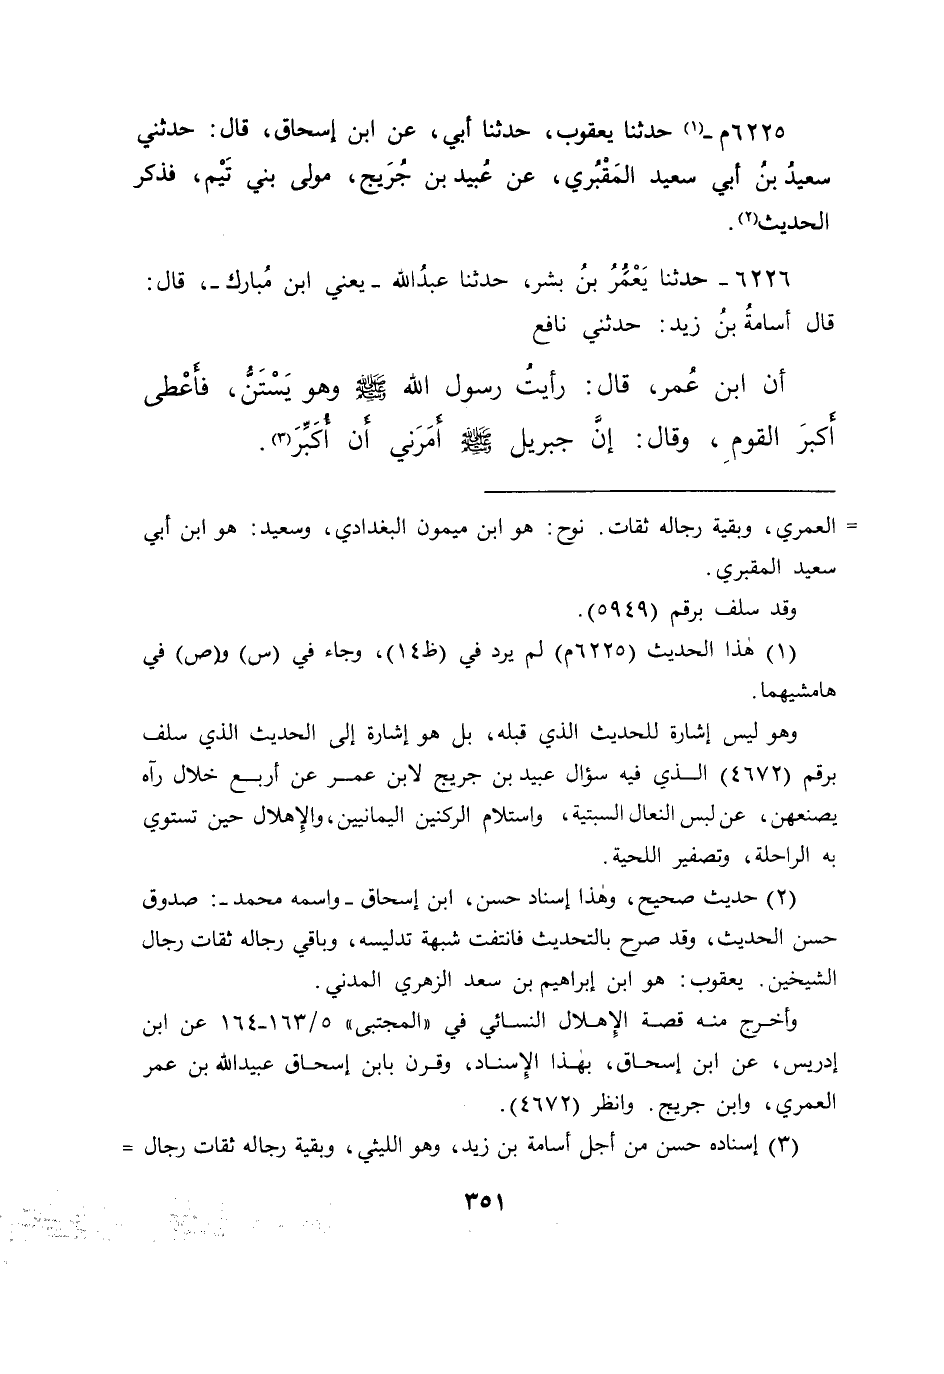 ٦٢٢٥م ـ(١) حدثنا يعقوب، حدثنا أبي، عن ابن إسحاق، قال: حدثني
سعيدُ بنُ أبي سعيد المَقْبُري، عن عُبيد بن جُرَيج، مولى بني تَيْم، فذكر
الحديث(٢).
٦٢٢٦ ـ حدثنا يَعْمُرُ بنُ بشر، حدثنا عبدُالله ـ يعني ابن مُبارك ـ، قال:
قال أسامةُ بنُ زيد: حدثني نافع
أن ابن عُمر، قال: رأيتُ رسول الله ﷺ وهو يَسْتَنُّ، فأَعْطى
أَكبرَ القومِ، وقال: إنَّ جبريل ﷺ أَمَرَني أَن أُكَبِّرَ(٣).
= العمري، وبقية رجاله ثقات. نوح: هو ابن ميمون البغدادي، وسعيد: هو ابن أبي
سعيد المقبري.
وقد سلف برقم (٥٩٤٩).
(١) هٰذا الحديث (٦٢٢٥م) لم يرد في (ظ١٤)، وجاء في (س) و(ص) في
هامشيهما.
وهو ليس إشارة للحديث الذي قبله، بل هو إشارة إلى الحديث الذي سلف
برقم (٤٦٧٢) الـذي فيه سؤال عبيد بن جريج لابن عمر عن أربع خلال رآه
يصنعهن، عن لبس النعال السبتية، واستلام الركنين اليمانيين، والإهلال حين تستوي
به الراحلة، وتصفير اللحية.
(٢) حديث صحيح، وهٰذا إسناد حسن، ابن إسحاق ـ واسمه محمد ـ: صدوق
حسن الحديث، وقد صرح بالتحديث فانتفت شبهة تدليسه، وباقي رجاله ثقات رجال
الشيخين. يعقوب: هو ابن إبراهيم بن سعد الزهري المدني.
وأخرج منه قصة الإهلال النسائي في «المجتبى» ١٦٣/٥-١٦٤ عن ابن
إدريس، عن ابن إسحاق، بهٰذا الإسناد، وقرن بابن إسحاق عبيدالله بن عمر
العمري، وابن جريج. وانظر (٤٦٧٢).
(٣) إسناده حسن من أجل أسامة بن زيد، وهو الليثي، وبقية رجاله ثقات رجال =
٣٥١